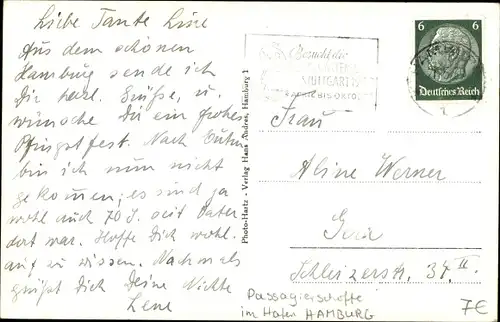 Liebe Tante Line
Aus dem schönen
Hamburg sende ich
Dir herzl. Grüße, u.
wünsche Dir ein frohes
Pfingstfest. Nach Eutin
bin ich nun nicht
gekommen; es sind ja
wohl auch 70 J. seit Vater
dort war. Hoffe Dich wohl
auf zu wissen. Nochmals
grüßt Dich Deine Nichte
Lene
Photo-Hartz - Verlag Hans Andres, Hamburg 1
Besucht die
STUTTGART
BIS OKTO.
6 6
Deutsches Reich
Frau
Aline Werner
Gera
Schleizerstr. 37 II
Passagierschiffe
im Hafen HAMBURG
7€